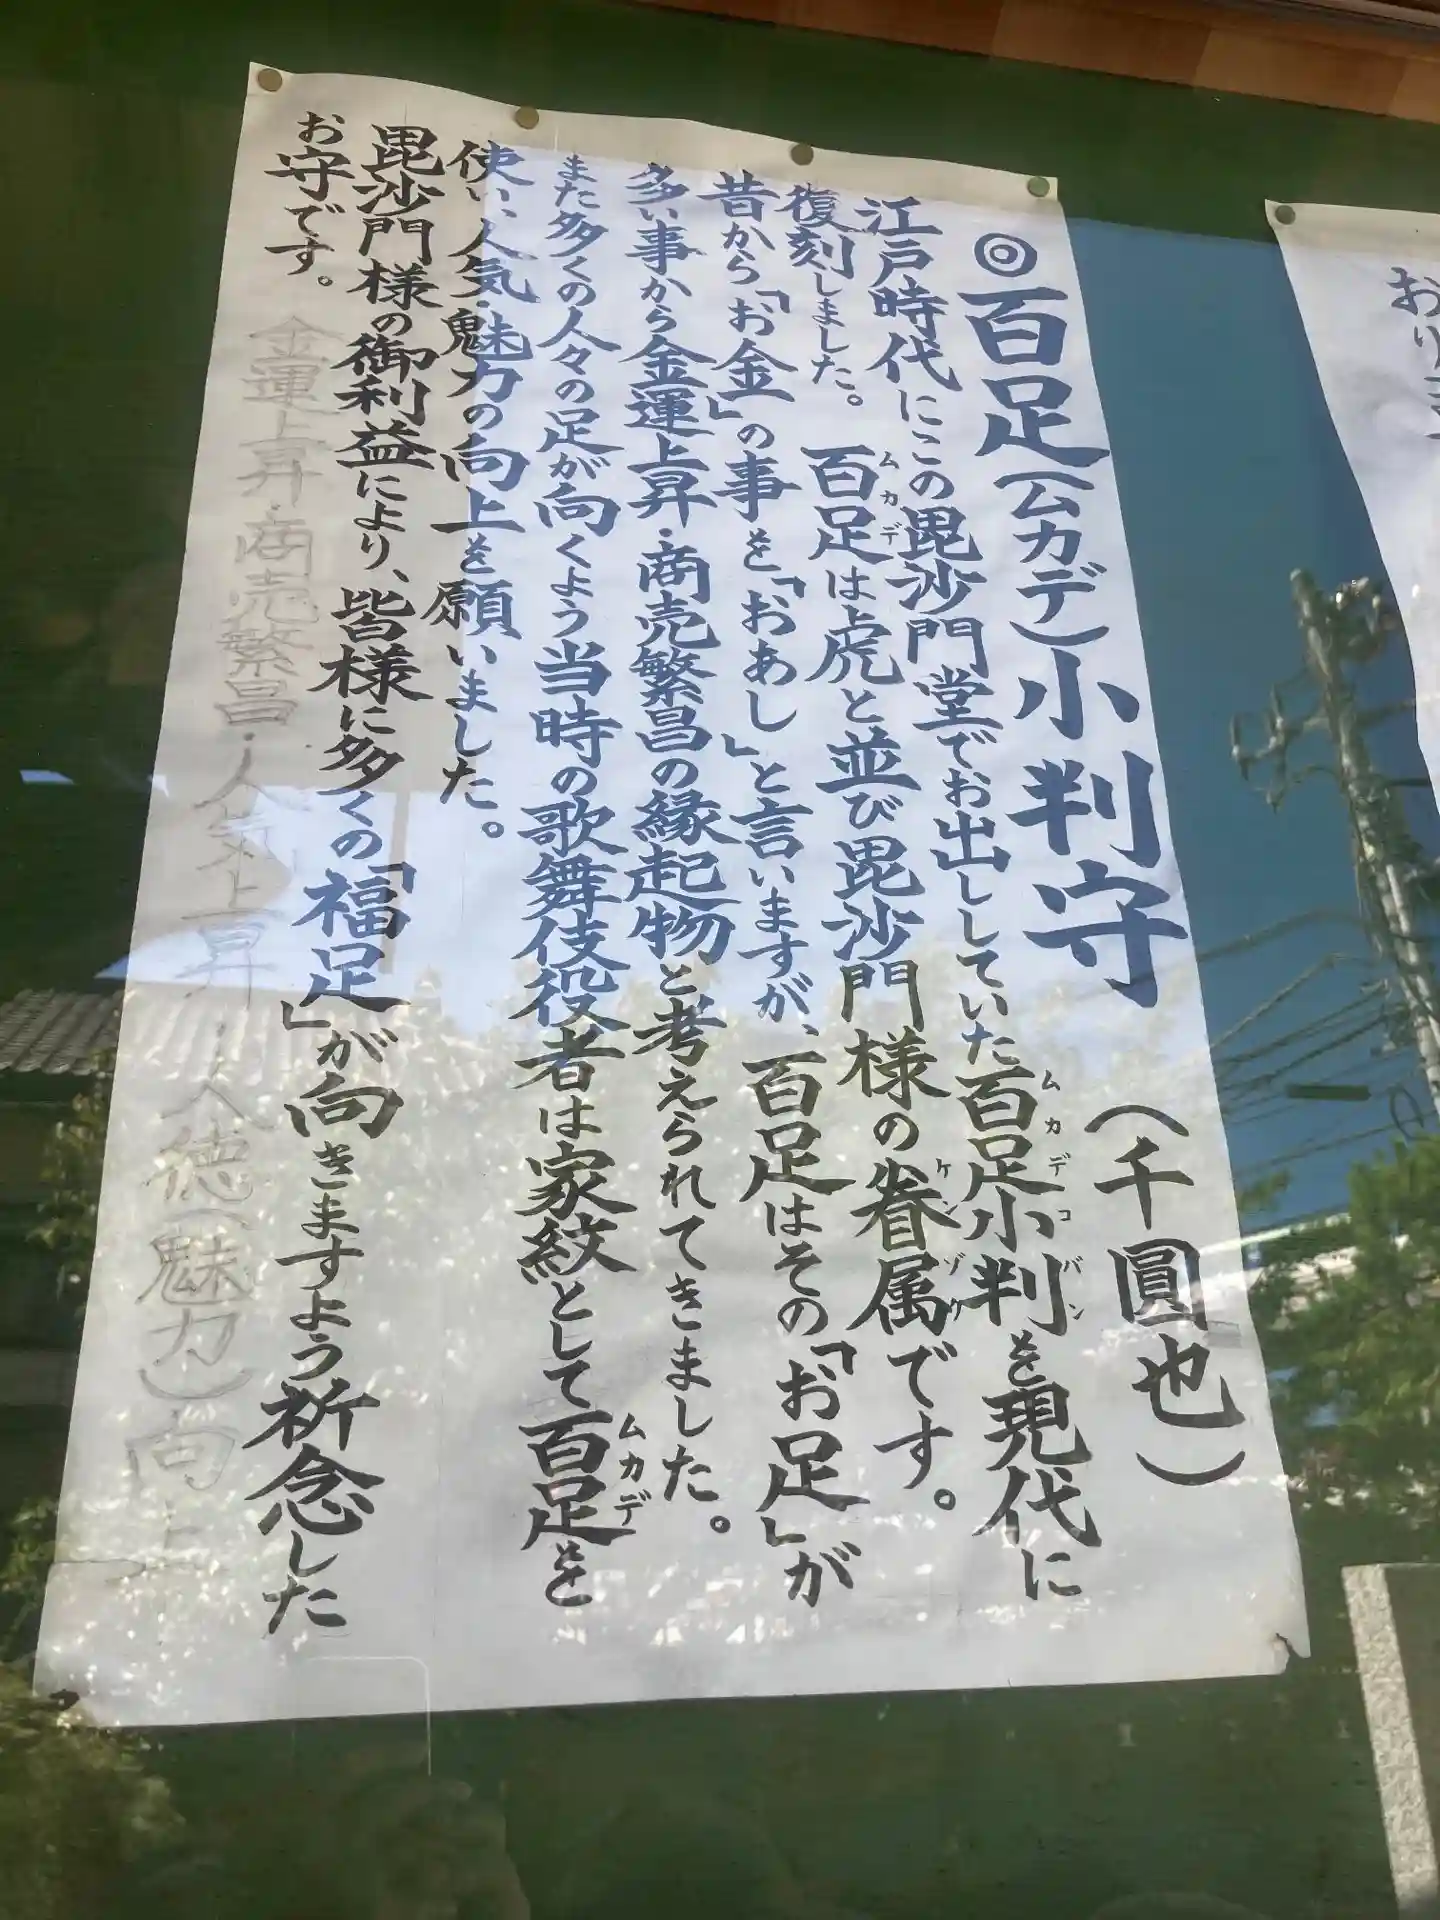 ◎百足(ムカデ)小判守 (千圓也)
江戸時代にこの毘沙門堂でお出ししていた百足小判を現代に
ムカデコバン
復刻しました。 百足は虎と並び毘沙門様の眷属です。
ムカデ
ケンゾク
昔から「お金」の事を「おあし」と言いますが、百足はその「お足」が
多い事から金運上昇・商売繁昌の縁起物と考えられてきました。
また多くの人々の足が向くよう当時の歌舞伎役者は家紋として百足を
ムカデ
使い、人気・魅力の向上を願いました。
毘沙門様の御利益により、皆様に多くの「福足」が向きますよう祈念した
お守です。
金運上昇・商売繁昌・人気上昇・人徳(魅力)向上
おり